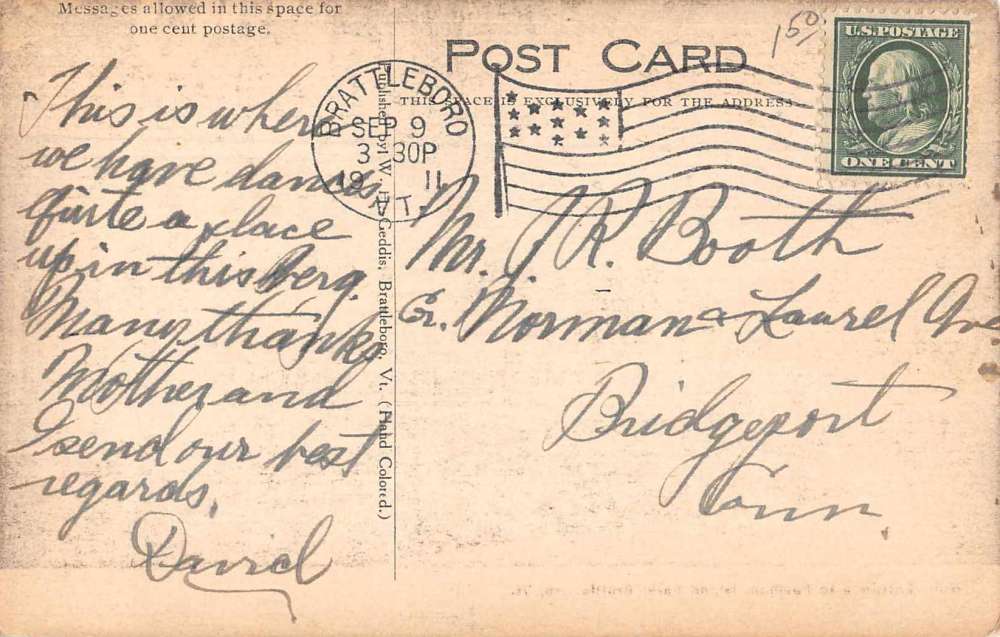 Messages allowed in this space for
one cent postage.
POST CARD
THIS SPACE IS EXCLUSIVELY FOR THE ADDRESS
150
U.S. POSTAGE
ONE CENT
BRATTLEBORO
SEP 9
3 30P
19 11
VT.
This is where
we have dances
Quite a place
up in this berg.
Many thanks
Mother and
I send our best
regards.
David
Published by W. H. Geddis, Brattleboro, Vt. (Hand Colored.)
Mr. J. R. Booth
Cr. Norman & Laurel Ave
Bridgeport
Conn